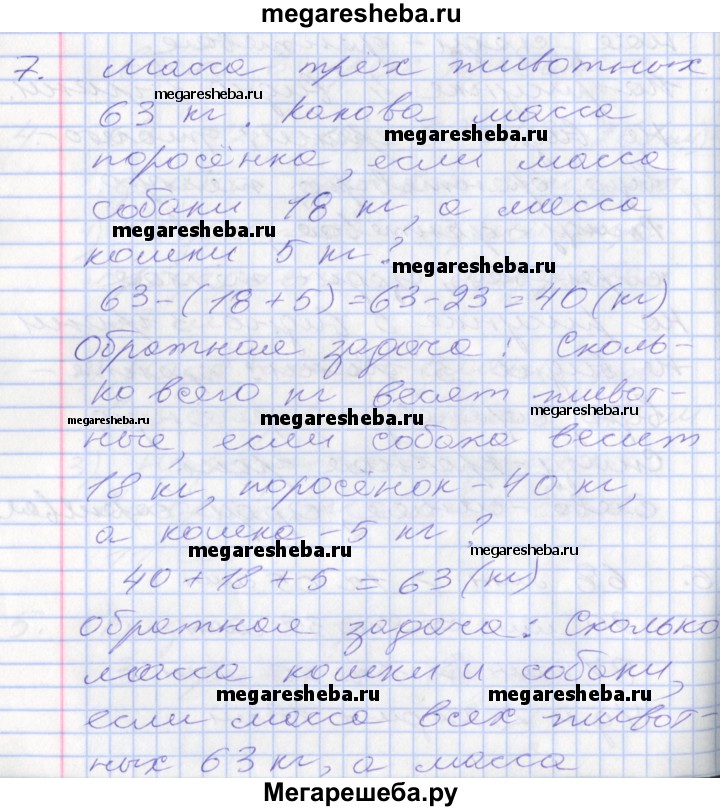 megaresheba.ru
7. Масса трёх животных
megaresheba.ru
63 кг. Какова масса
megaresheba.ru
поросёнка, если масса
собаки 18 кг, а масса
megaresheba.ru
кошки 5 кг?
megaresheba.ru
63-(18+5)=63-23=40(кг)
Обратная задача: Сколь-
ко всего кг весят живот-
megaresheba.ru megaresheba.ru megaresheba.ru
ные, если собака весит
18 кг, поросёнок-40 кг,
а кошка-5 кг?
megaresheba.ru megaresheba.ru
40+18+5=63(кг)
Обратная задача: Сколько
масса кошки и собаки,
megaresheba.ru megaresheba.ru
если масса всех живот-
ных 63 кг, а масса
Мегарешеба.ру